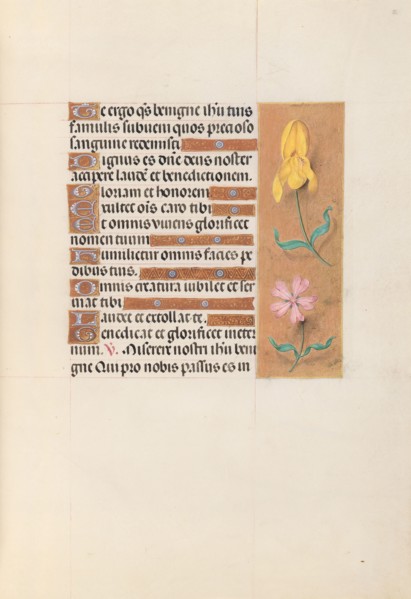 Te ergo qs benigne ihu tuis
famulis subueni quos precioso
sanguine redemisti
Dignus es dne deus noster
accipere laude et benedictionem.
Gloriam et honorem
Exultet ois caro tibi
Et omnis viuens glorificet
nomen tuum
Humilietur omnis facies pe
dibus tuis.
Omnis creatura iubilet et ser
uiat tibi
Laudet et extollat et
Benedicat et glorificet in eter
num. V. Miserere nostri ihu beni
gne Qui pro nobis passus es in